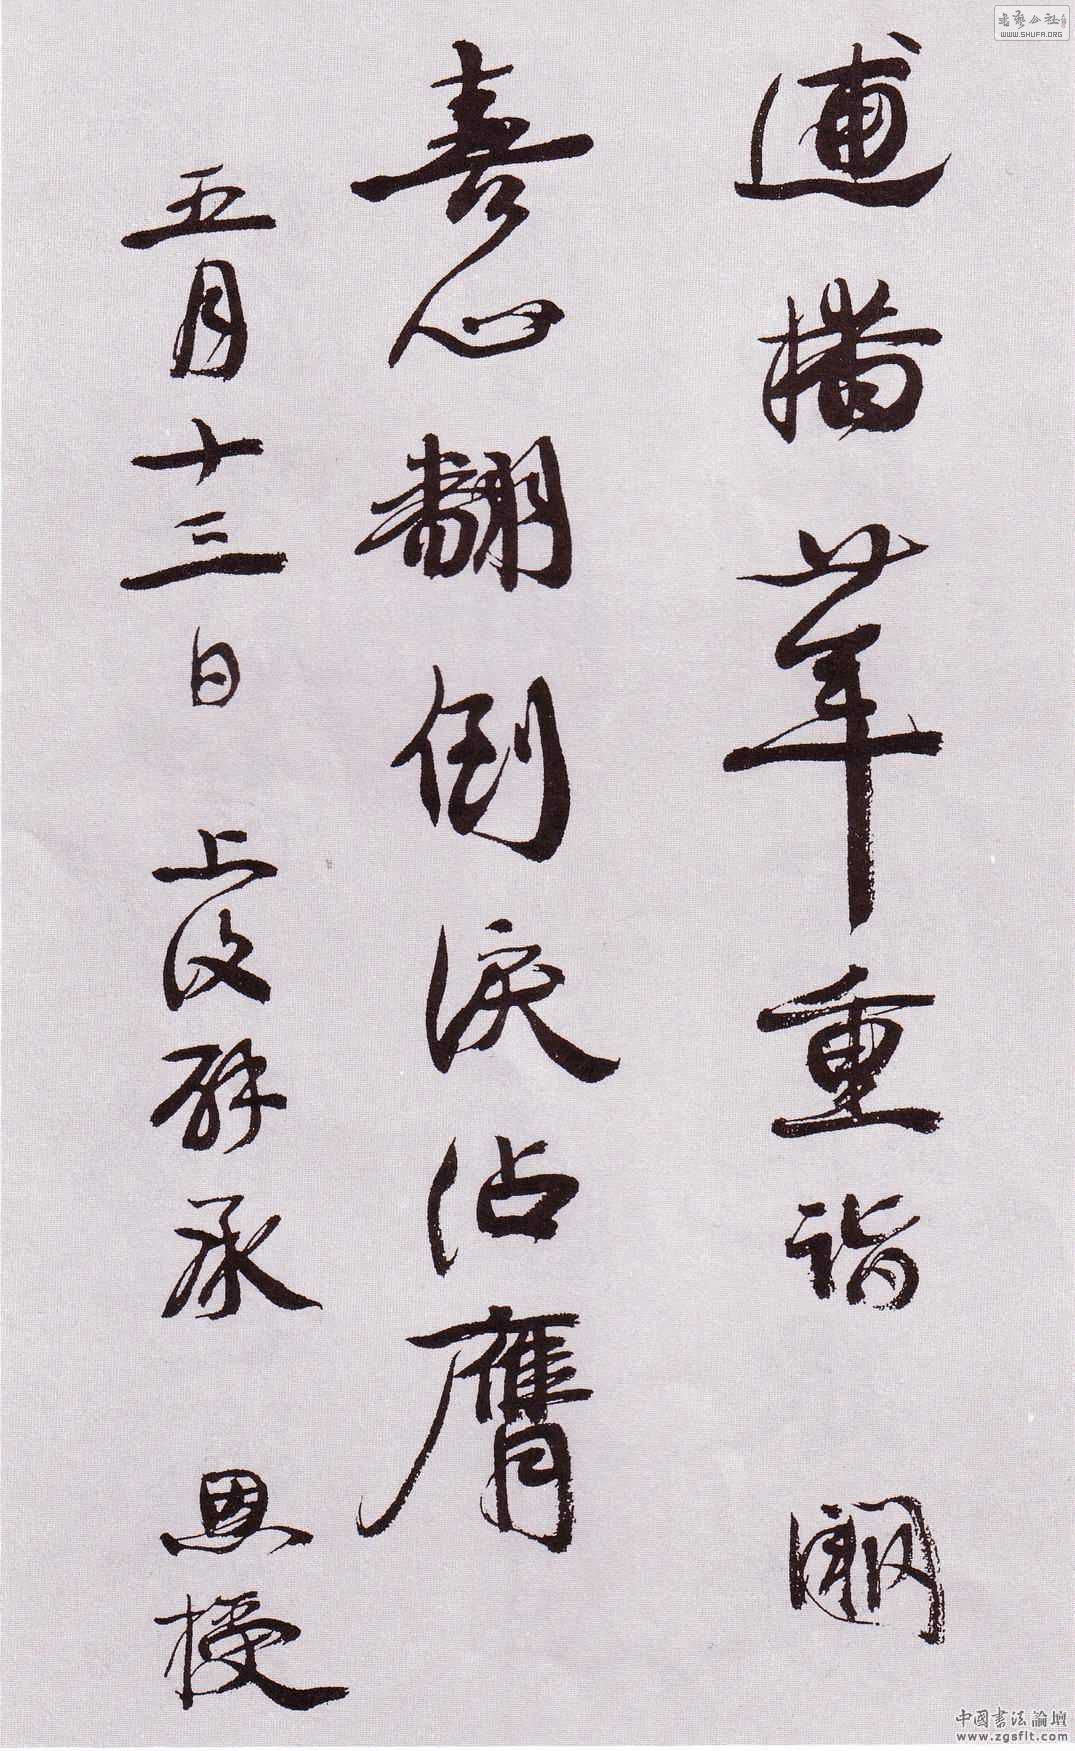 逋播莘重詣 闕
喜心翻倒淚沾膺
五月十三日 上復辟承 恩授
书艺公社
WWW.SHUFA.ORG
中國书法論壇
www.zgsflt.com